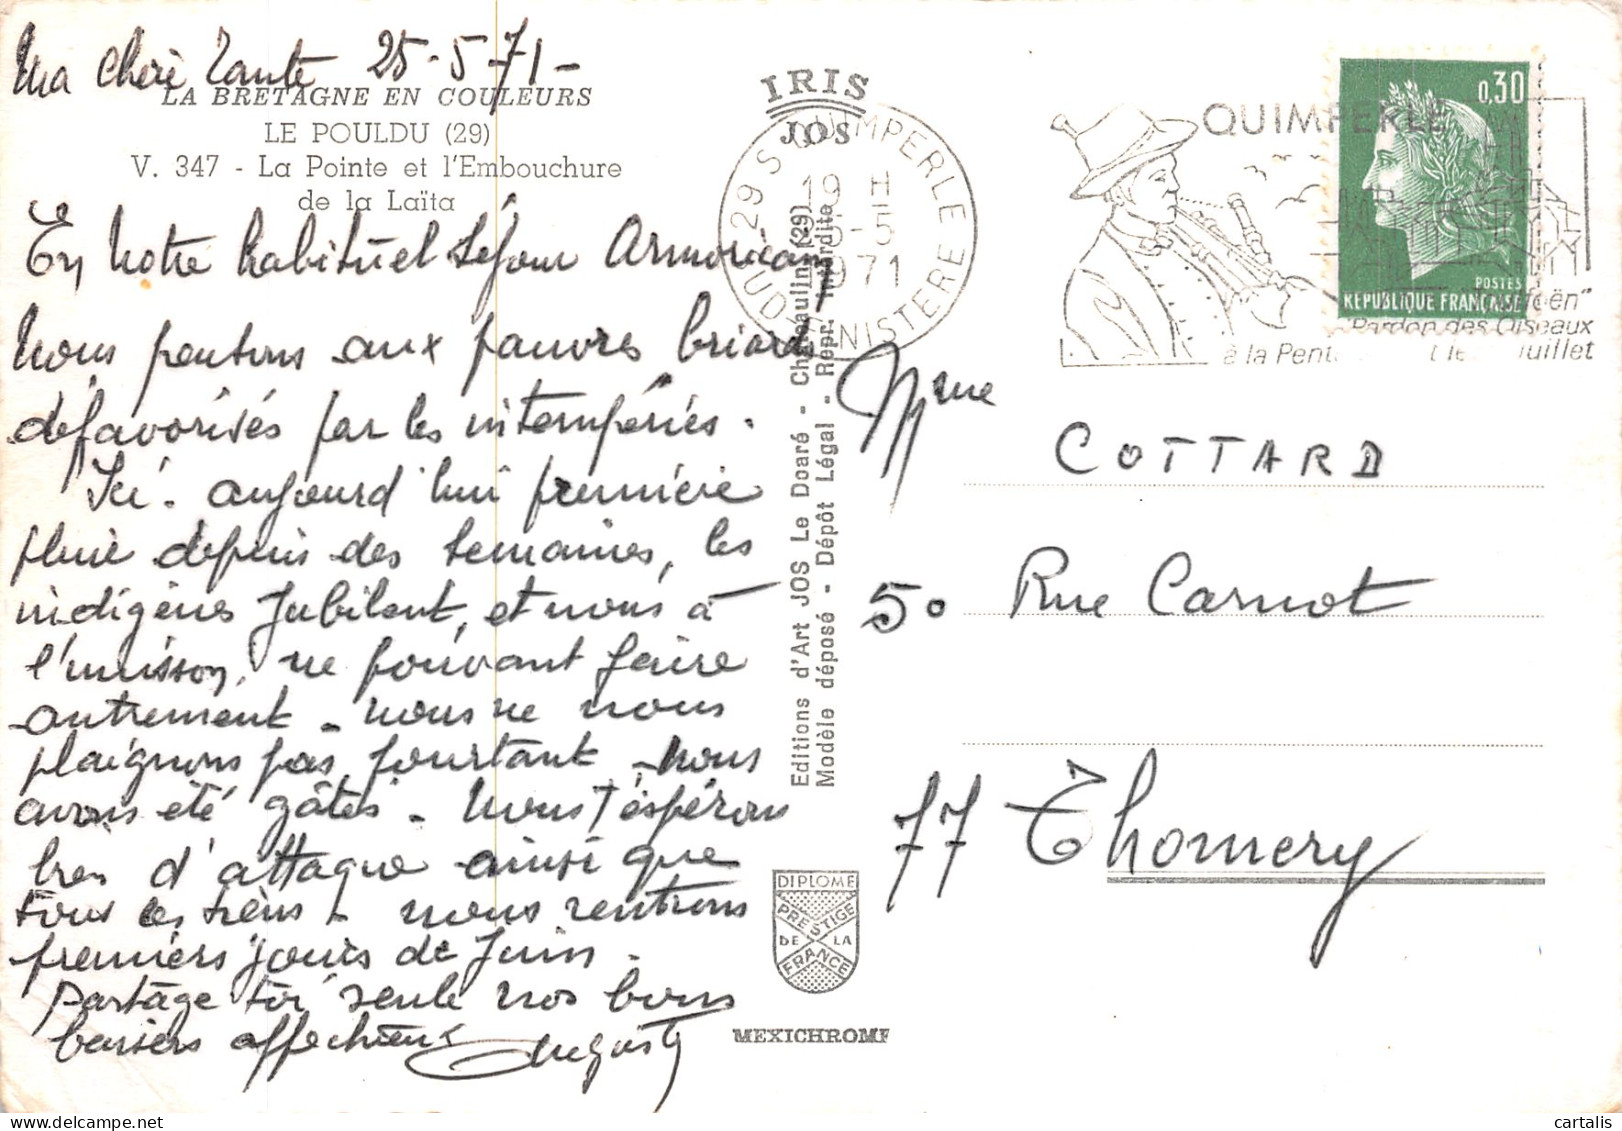 Ma Chère Tante 25-5-71-
LA BRETAGNE EN COULEURS
LE POULDU (29)
V. 347 - La Pointe et l'Embouchure
de la Laïta
En Notre habituel séjour Armoricain,
Nous pensons aux pauvres briards
défavorisés par les intempéries.
Ici - aujourd'hui première
pluie depuis des semaines, les
indigènes jubilent, et nous à
l'unisson, ne pouvant faire
autrement - nous ne nous
plaignons pas, pourtant - Nous
avons été gâtés - Nous t'espérons
bien d'attaque ainsi que
tous les tiens - nous rentrons
premiers jours de Juin -
Partage toi seule nos bons
baisers affectueux
IRIS
JOS
29 S QUIMPERLE
19 H
5-5
1971
SUD FINISTERE
Editions d'Art JOS Le Doaré - Chateaulin (29)
Modèle déposé - Dépôt Légal - Repr. interdite
DIPLOME
PRESTIGE
DE LA
FRANCE
MEXICHROME
QUIMPERLE
0,30
POSTES
REPUBLIQUE FRANÇAISE
Pardon des Oiseaux
à la Pent juillet
Mme
COTTARD
50 Rue Carnot
77 Thomery
cartalis.delcampe.net